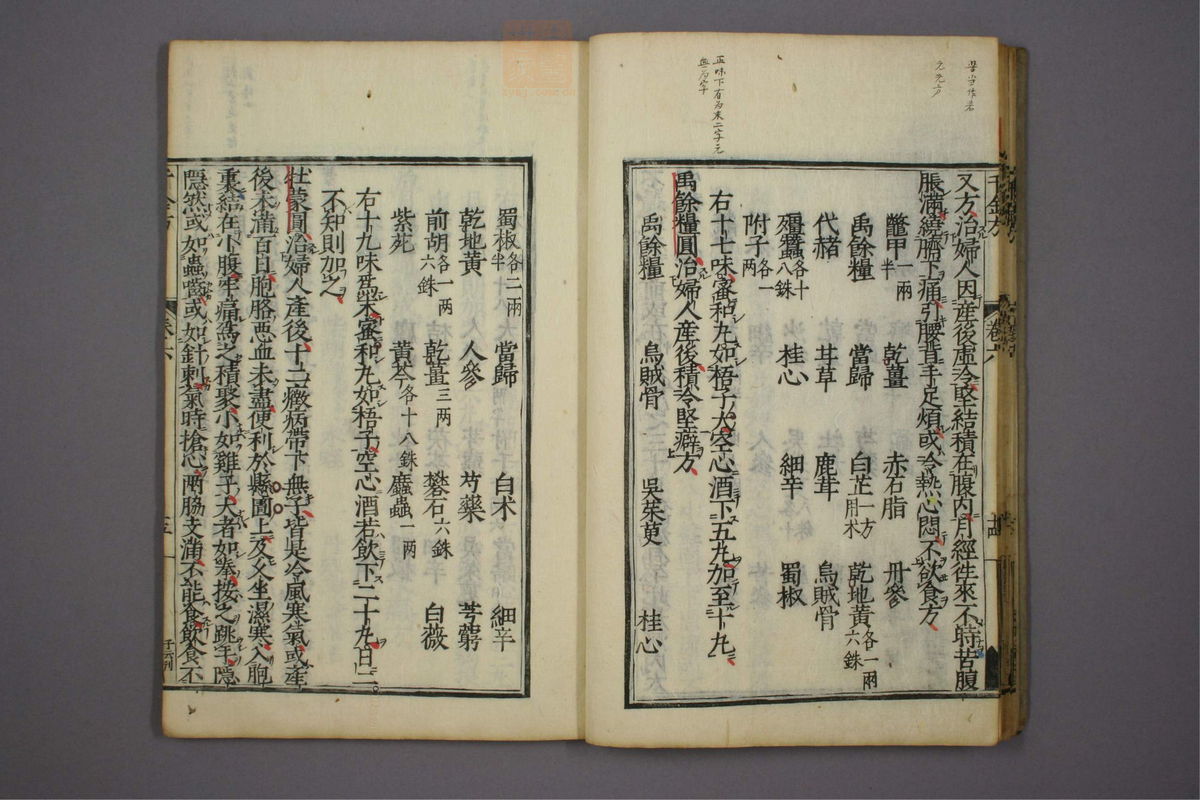 苦当作若
元無方
正味下有為末二字元
無为字
千金方
卷六
又方治婦人因產後虛冷堅結積在腹內月經往來不時苦腹
脹滿繞臍下痛引腰背手足煩或冷熱心悶不欲食方
鱉甲一兩半 乾薑 赤石脂 丹參
禹餘糧 當歸 白芷一方用朮 乾地黃各一兩六銖
代赭 甘草 鹿茸 烏賊骨
殭蠶各十八銖 桂心 細辛 蜀椒
附子各一兩
右十七味蜜和丸如梧子大空心酒下五丸加至十丸
禹餘糧圓治婦人產後積冷堅癖方
禹餘糧 烏賊骨 吳茱萸 桂心
蜀椒各二兩半 當歸 白朮 細辛
乾地黃 人參 芍藥 芎藭
前胡各一兩六銖 乾薑三兩 礬石六銖 白薇
紫菀 黃芩各十八銖 䗪蟲一兩
右十九味為末蜜和丸如梧子空心酒若飲下二十丸日二
不知則加之
牡蒙圓治婦人產後十二癥病帶下無子皆是冷風寒氣或產
後未滿百日胞胳惡血未盡便利於懸圊上及久坐濕寒入胞
裏結在小腹牢痛為之積聚小如雞子大者如拳按之跳手隱
隱然或如蟲齧或如針刺氣時搶心兩脇支滿不能食飲食不
千金方
卷六
五